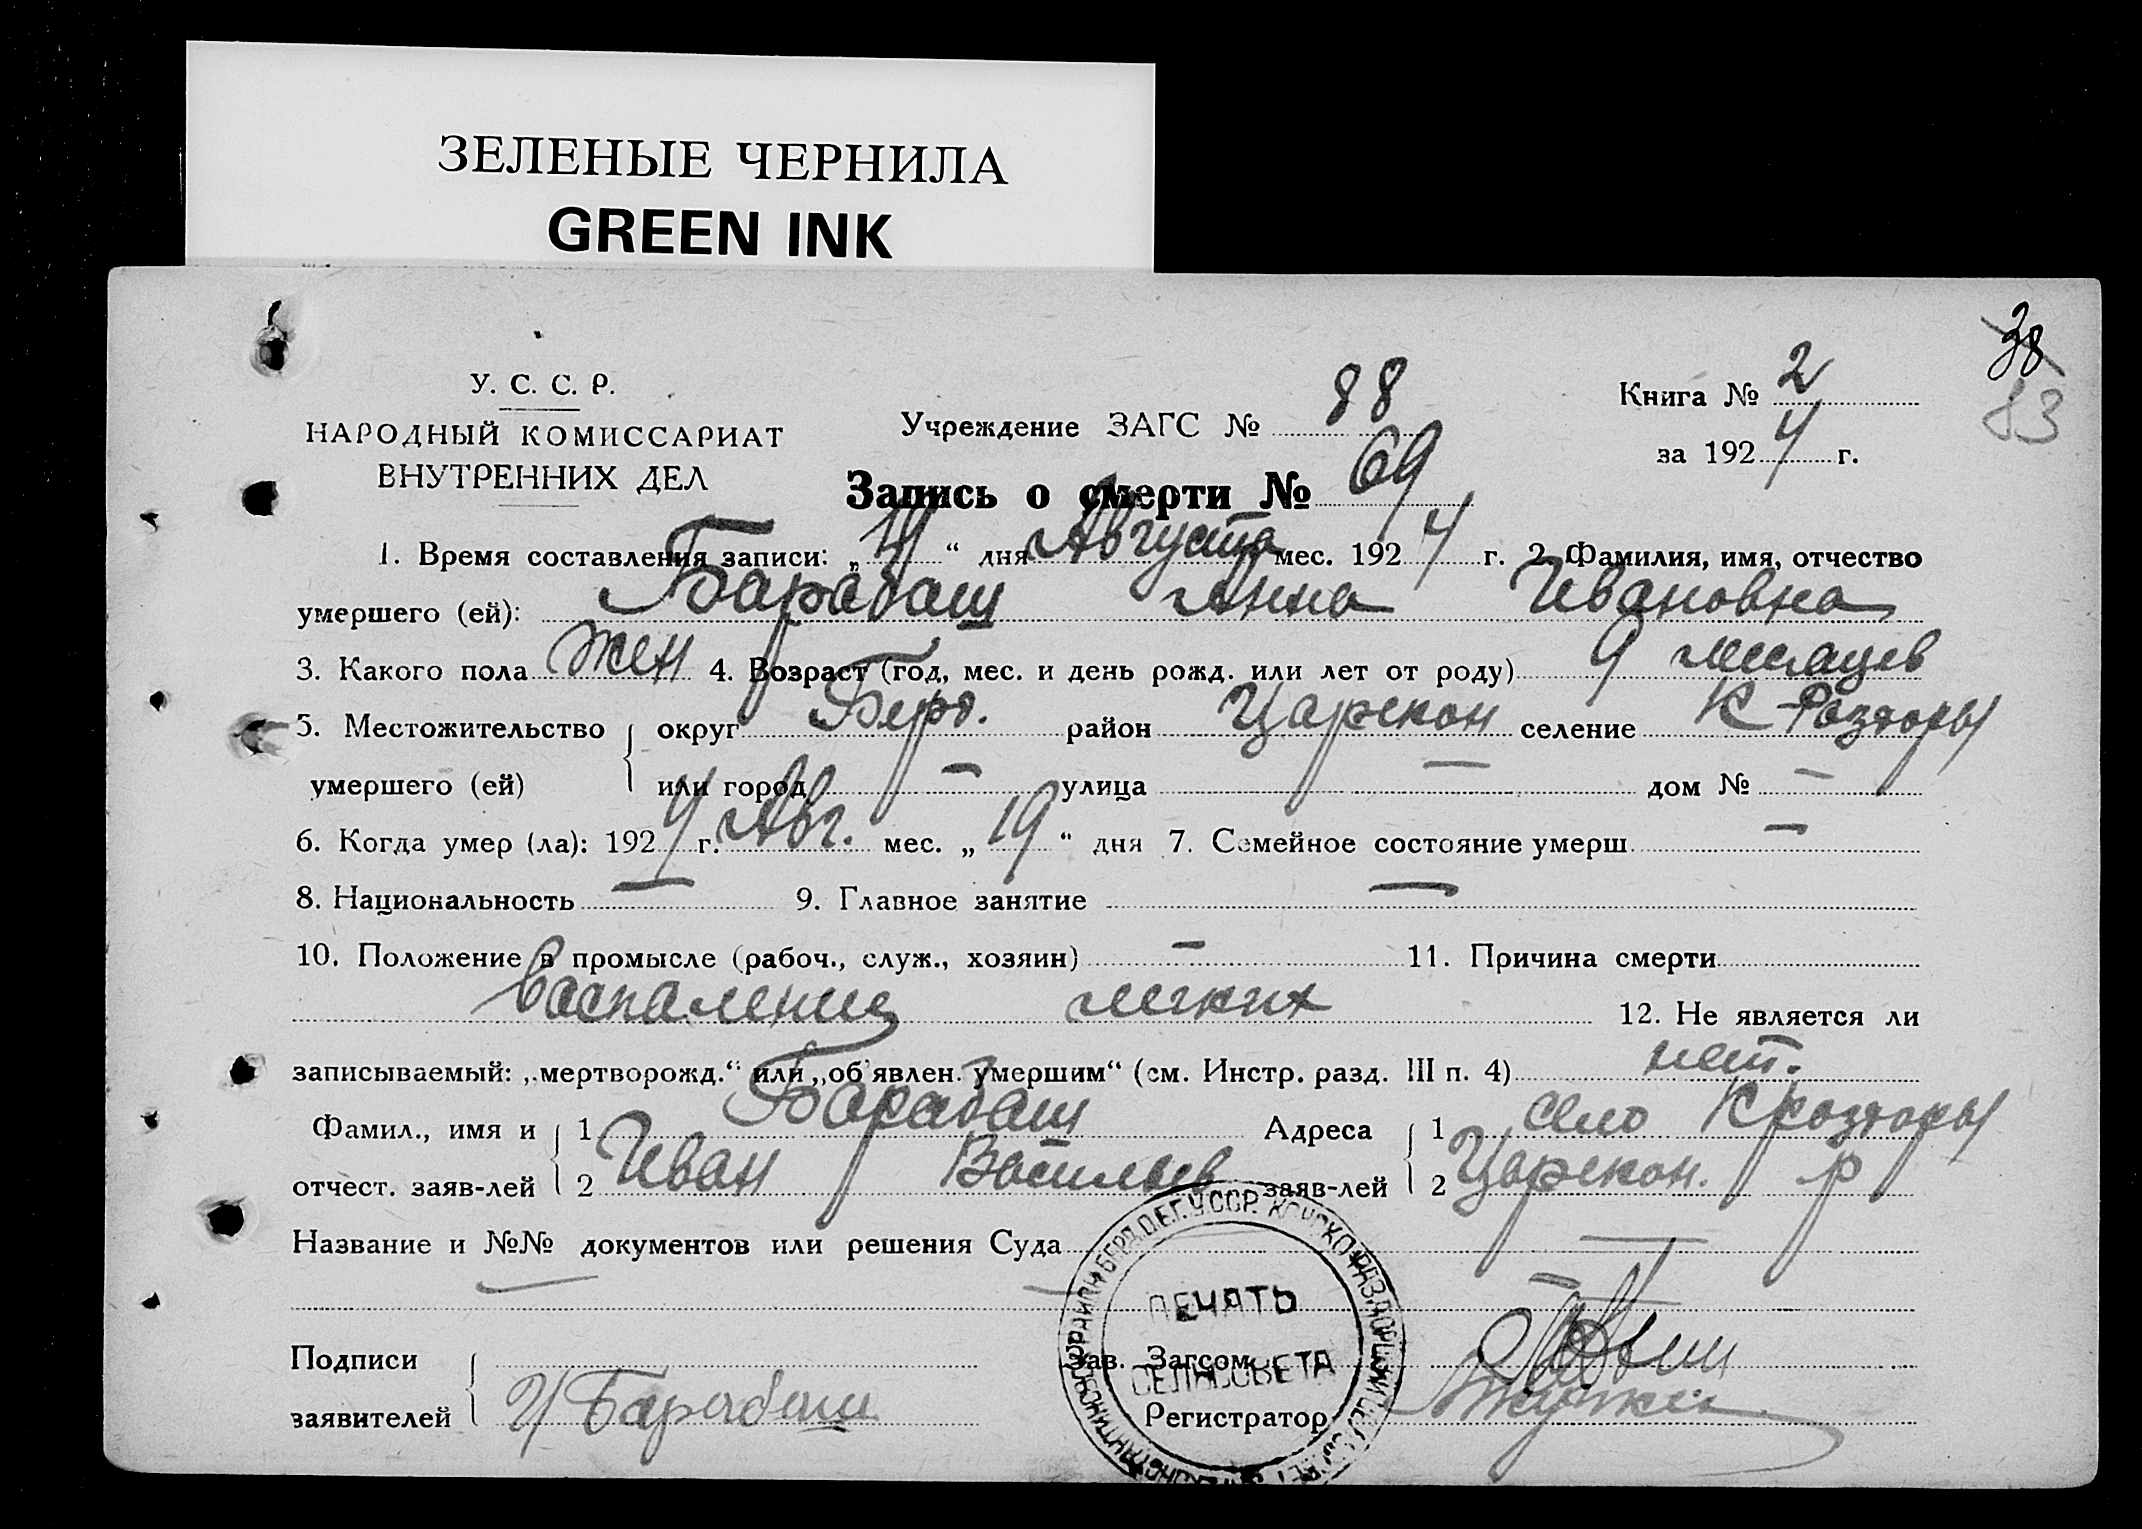 ЗЕЛЕНЫЕ ЧЕРНИЛА
GREEN INK
38
83
У. С. С. Р.
НАРОДНЫЙ КОМИССАРИАТ
ВНУТРЕННИХ ДЕЛ
Учреждение ЗАГС № 88
Книга № 2
за 1924 г.
Запись о смерти № 69
1. Время составления записи: „19“ дня Августа мес. 1924 г. 2. Фамилия, имя, отчество
умершего (ей): Барабаш Анна Ивановна
3. Какого пола жен 4. Возраст (год, мес. и день рожд. или лет от роду) 9 месяцев
5. Местожительство округ Берд. район Царекон селение К-Роздоры
умершего (ей) или город — улица — дом № —
6. Когда умер (ла): 1924 г. Авг. мес. „19“ дня 7. Семейное состояние умерш. —
8. Национальность — 9. Главное занятие —
10. Положение в промысле (рабоч., служ., хозяин) — 11. Причина смерти
воспаление легких 12. Не является ли
записываемый: „мертворожд.“ или „об'явлен. умершим“ (см. Инстр. разд. III п. 4) нет.
Фамил., имя и 1 Барабаш Адреса 1 село Кроздоры
отчест. заяв-лей 2 Иван Васильев заяв-лей 2 Царекон. р
Название и №№ документов или решения Суда —
ПЕЧАТЬ
СЕЛЬСОВЕТА
Подписи Зав. Загсом
заявителей И Барабаш Регистратор